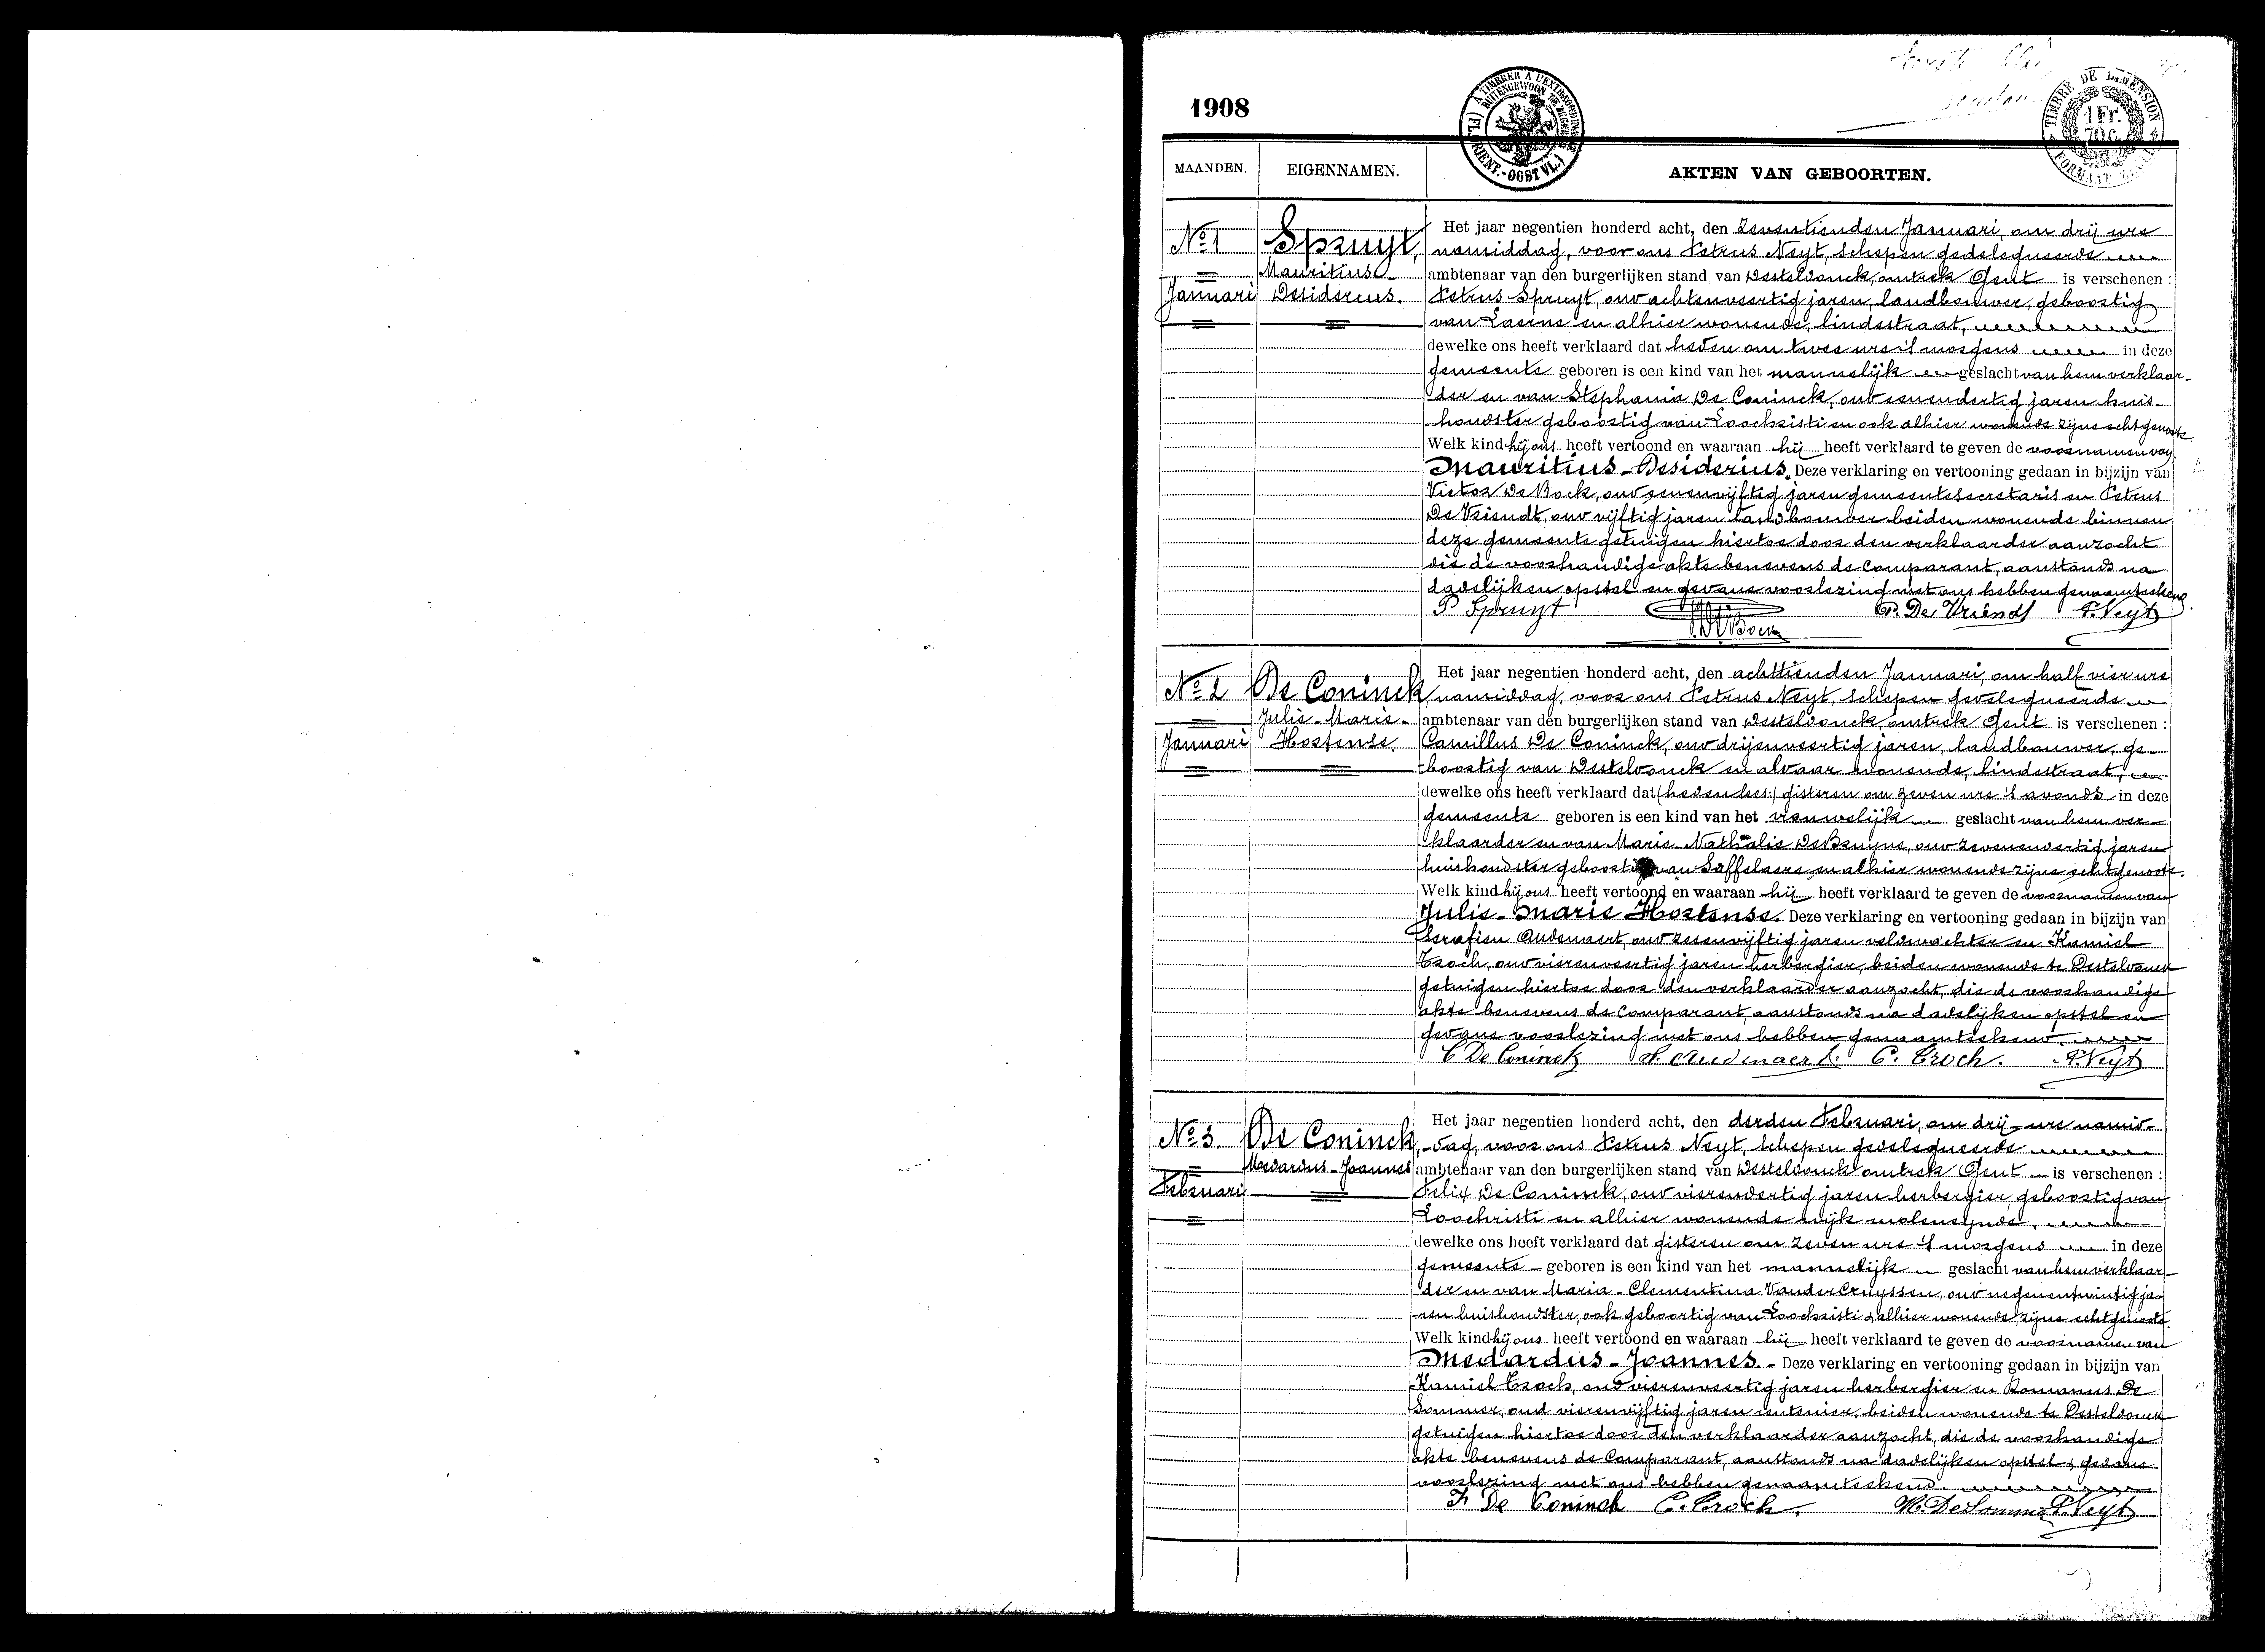 1908
À TIMBRER À L'EXTRAORDINAIRE
BUITENGEWOON TE ZEGELEN
(FL. ORIENT.-OOST VL.)
TIMBRE DE DIMENSION
1 Fr.
70 C.
MAANDEN.
EIGENNAMEN.
AKTEN VAN GEBOORTEN.
No 1
Januari
Spruyt,
Mauritius-
Desiderius.
Het jaar negentien honderd acht, den Zeventienden Januari, om drij ure
namiddag, voor ons Petrus Neyt, schepen gedelegueerde
ambtenaar van den burgerlijken stand van Desteldonck, omtrek Gent is verschenen :
Petrus Spruyt, oud achtenveertig jaren, landbouwer, geboortig
van Laerne en alhier wonende, lindestraat,
dewelke ons heeft verklaard dat heden om twee ure 's morgens in deze
gemeente geboren is een kind van het mannelijk geslacht van hem verklaar-
der en van Stephania De Coninck, oud eenendertig jaren huis-
houdster geboortig van Loochristi en ook alhier wonende zijne echtgenoote.
Welk kind hij ons heeft vertoond en waaraan hij heeft verklaard te geven de voornamen van
Mauritius-Desiderius. Deze verklaring en vertooning gedaan in bijzijn van
Victor De Bock, oud eenenvijftig jaren gemeentesecretaris en Petrus
De Vriendt, oud vijftig jaren landbouwer beiden wonende binnen
deze gemeente getuigen hiertoe door den verklaarder aanzocht
die de voorhandige akte benevens de Comparant, aanstonds na
dadelijken opstel en gedane voorlezing met ons hebben genaamteekend.
P Spruyt
P. De Vriendt P. Neyt
No 2
Januari
De Coninck,
Julie-Marie-
Hortense.
Het jaar negentien honderd acht, den achttienden Januari, om half vier ure
namiddag, voor ons Petrus Neyt, schepen gedelegueerde
ambtenaar van den burgerlijken stand van Desteldonck, omtrek Gent is verschenen :
Camillus De Coninck, oud drijenveertig jaren, landbouwer, ge-
boortig van Desteldonck en aldaar wonende, lindestraat,
dewelke ons heeft verklaard dat (heden lees:) gisteren om zeven ure 's avonds in deze
gemeente geboren is een kind van het vrouwelijk geslacht van hem ver-
klaarder en van Marie-Nathalie De Bruyne, oud zevenendertig jaren
huishoudster geboortig van Saffelaere en alhier wonende zijne echtgenoote.
Welk kind hij ons heeft vertoond en waaraan hij heeft verklaard te geven de voornamen van
Julie-Marie Hortense. Deze verklaring en vertooning gedaan in bijzijn van
Serafien Audenaert, oud zesenvijftig jaren veldwachter en Kamiel
Troch, oud vierenveertig jaren herbergier, beiden wonende te Desteldonck
getuigen hiertoe door den verklaarder aanzocht, die de voorhandige
akte benevens de Comparant, aanstonds na dadelijken opstel en
gedane voorlezing met ons hebben genaamteekend.
C De Coninck S. Audenaert. C. Troch. P. Neyt
No 3
Februari
De Coninck,
Medardus-Joannes
Het jaar negentien honderd acht, den derden Februari, om drij ure namid-
dag, voor ons Petrus Neyt, schepen gedelegueerde
ambtenaar van den burgerlijken stand van Desteldonck omtrek Gent is verschenen :
Felix De Coninck, oud vierendertig jaren herbergier, geboortig van
Loochristi en alhier wonende wijk moleneynde,
dewelke ons heeft verklaard dat gisteren om zeven ure 's morgens in deze
gemeente geboren is een kind van het mannelijk geslacht van hem verklaar-
der en van Maria-Clementina Vander Cruyssen, oud negenentwintig ja-
ren huishoudster, ook geboortig van Loochristi & alhier wonende, zijne echtgenoote.
Welk kind hij ons heeft vertoond en waaraan hij heeft verklaard te geven de voornamen van
Medardus-Joannes. Deze verklaring en vertooning gedaan in bijzijn van
Kamiel Troch, oud vierenveertig jaren herbergier en Romanus De
Sommer, oud vierenvijftig jaren rentenier, beiden wonende te Desteldonck
getuigen hiertoe door den verklaarder aanzocht, die de voorhandige
akte benevens de Comparant, aanstonds na dadelijken opstel & gedane
voorlezing met ons hebben genaamteekend.
F De Coninck C. Troch. P. Neyt